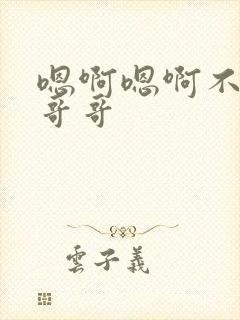 嗯啊嗯啊不
哥哥
雲子義